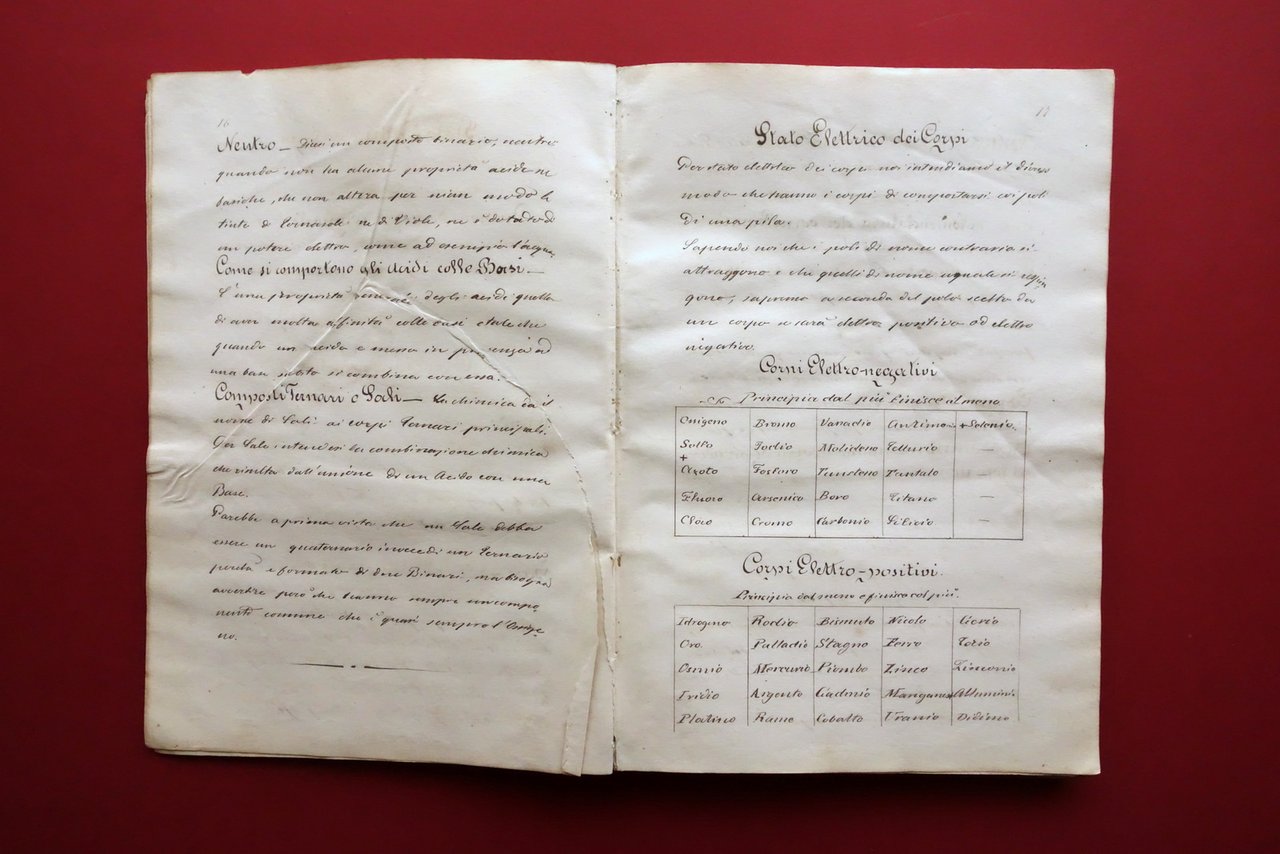 16
Neutro – Dicesi un composto binario, neutro
quando non ha alcune proprietà acide ne
basiche, che non altera per niun modo le
tinte di Tornasole ne di Viole, ne è dotato di
un potere elettro, come ad esempio l'acqua
Come si comportono gli Acidi colle Basi –
È una proprietà degli acidi quella
di aver molta affinità colle basi e tale che
quando un acido e messo in presenza ad
una base subito si combina con essa.
Composti Ternari o Sali – La chimica da il
nome di Sali ai corpi Ternari principali.
Per Sale intendesi la combinazione chimica
che risulta dall'unione di un Acido con una
Base.
Parebbe a prima vista che un Sale debba
essere un quaternario invece di un Ternario
perchè e formato di due Binari, ma bisogna
avvertire però che hanno sempre un compo
nente comune che è quasi sempre l'Ossige
no.
Stato Elettrico dei Corpi
Per stato elettrico dei corpi noi intendiamo il diverso
modo che hanno i corpi di comportarsi coi poli
di una pila.
Sapendo noi che i poli di nome contrario si
attraggono e che quelli di nome uguale si respin
gono, sapremo a seconda del polo scelto da
un corpo se sarà elettro positivo od elettro
negativo.
Corpi Elettro-negativi
Principia dal più finisce al meno
Ossigeno Bromo Vanadio Antimon. + Selenio.
Solfo Jodio Molideno Tellurio –
+
Azoto Fosforo Tunsteno Tantalo
Fluoro Arsenico Boro Titano –
Cloro Cromo Carbonio Silicio –
Corpi Elettro-positivi.
Principia dal meno e finisce col più.
Idrogeno Rodio Bismuto Nicolo Cerio
Oro Palladio Stagno Ferro Torio
Osmio Mercurio Piombo Zinco Zirconio
Iridio Argento Cadmio Manganese Allumini.
Platino Rame Cobalto Uranio Didimo